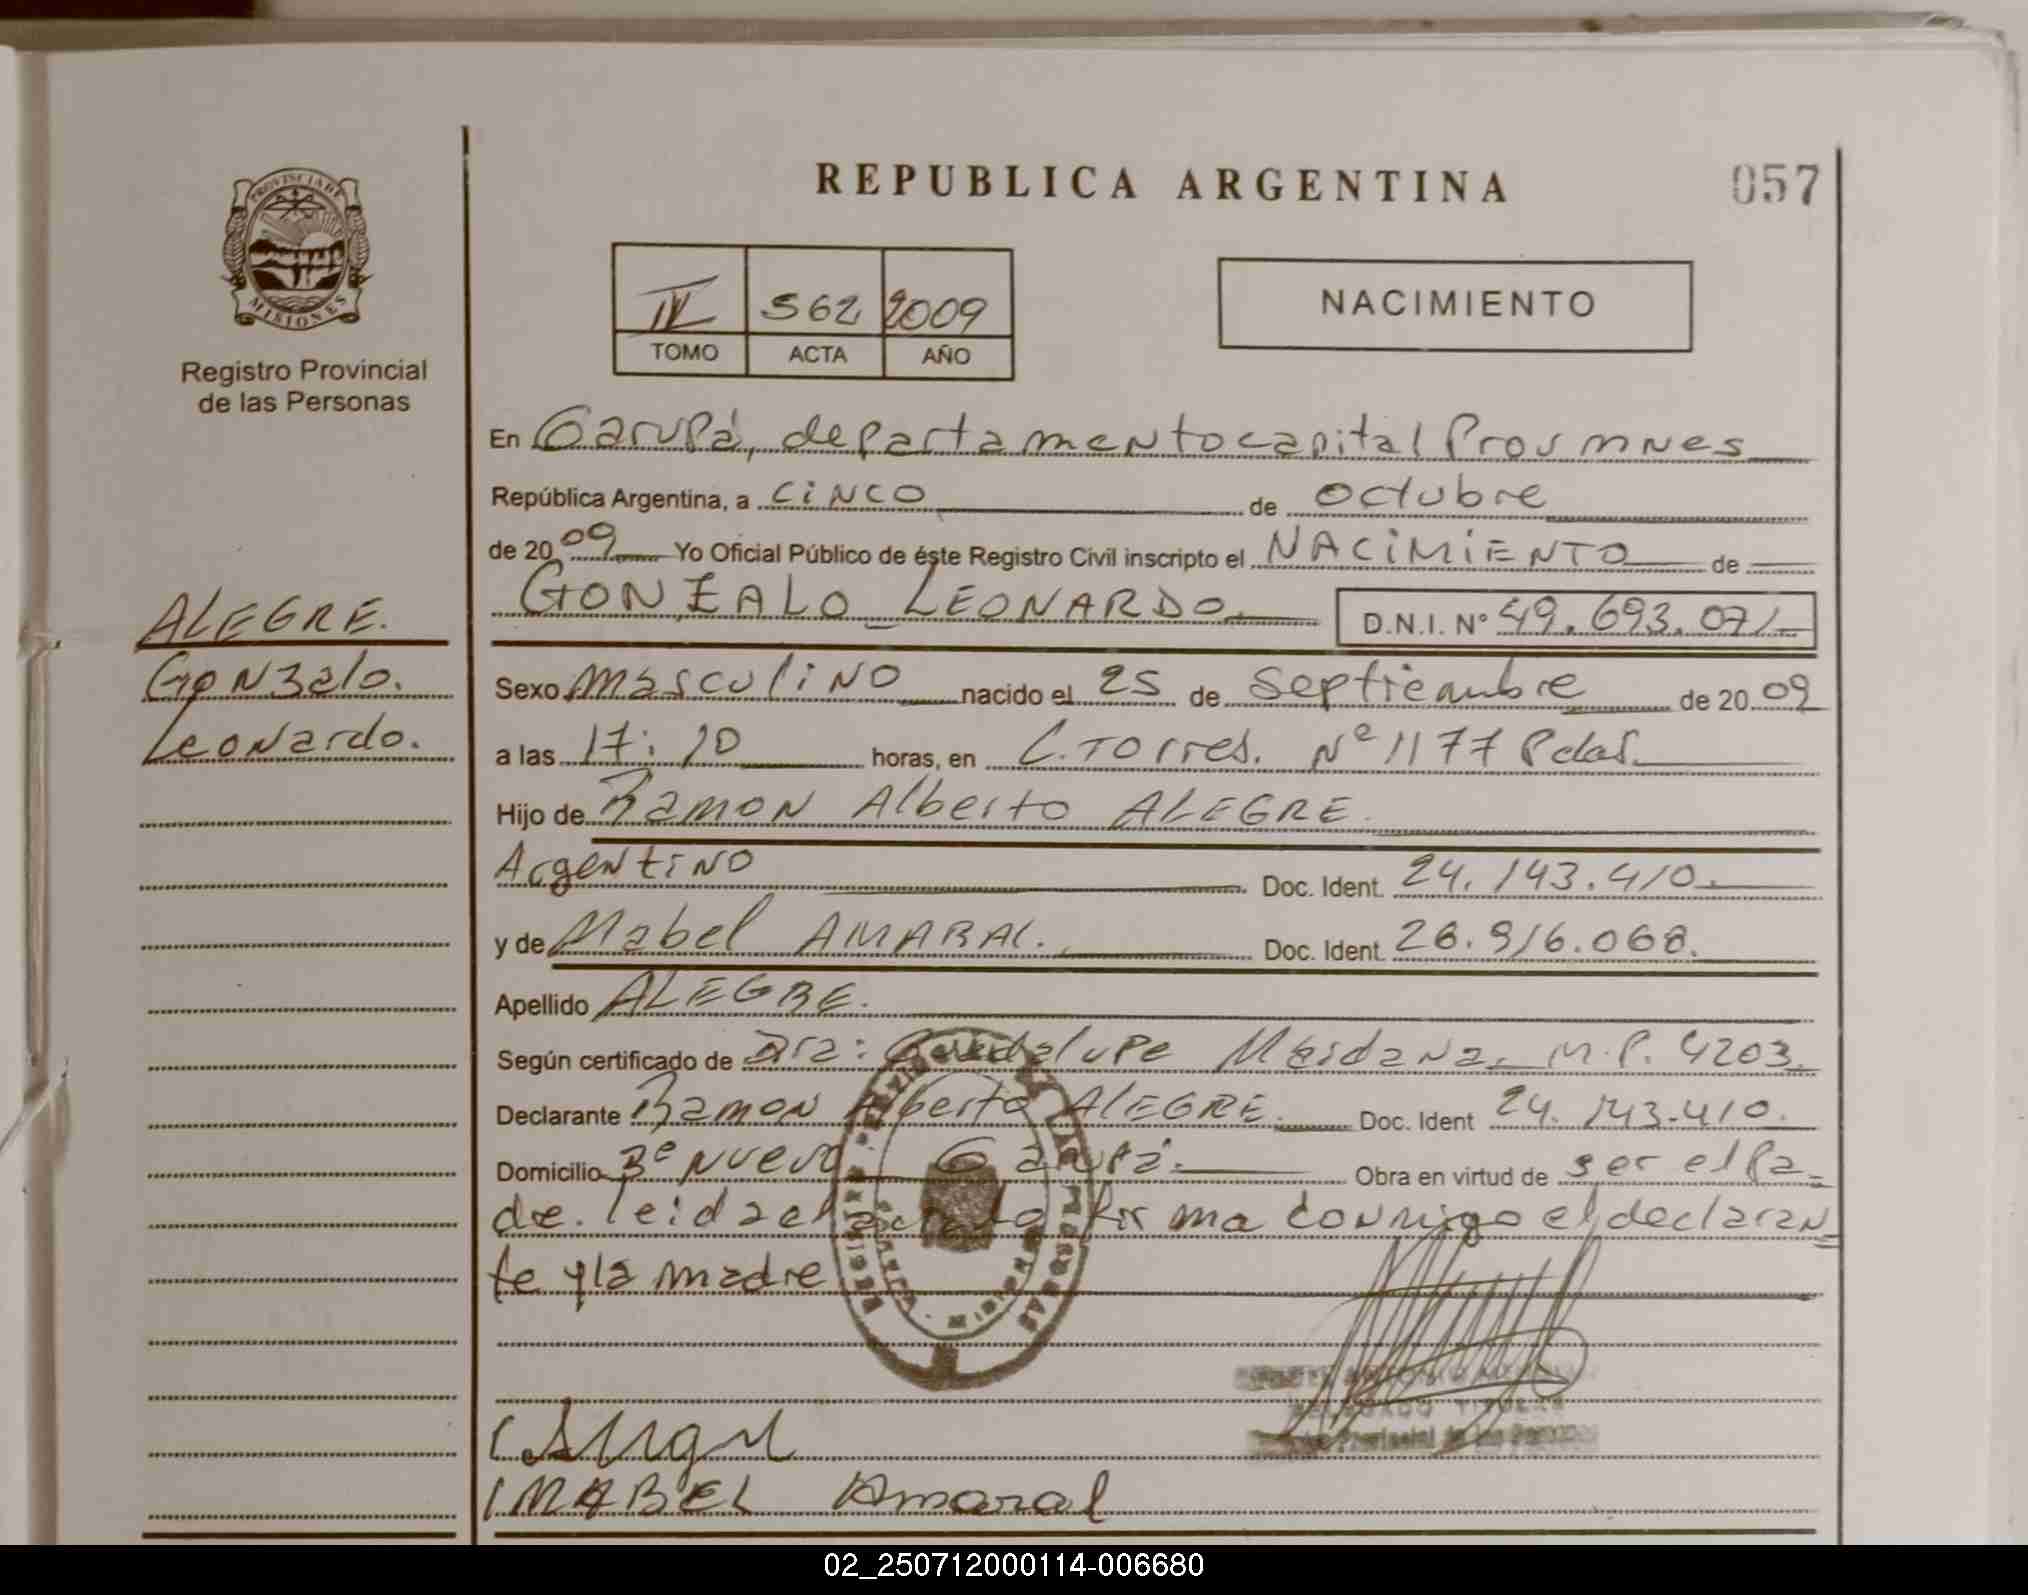 REPUBLICA ARGENTINA
057
PROVINCIA DE
MISIONES
Registro Provincial
de las Personas
IV 562 2009
TOMO ACTA AÑO
NACIMIENTO
En Garupá, departamento capital Prov mnes
República Argentina, a cinco de octubre
de 2009 Yo Oficial Público de éste Registro Civil inscripto el NACIMIENTO de
GONZALO LEONARDO D.N.I. Nº 49.693.071
ALEGRE.
Gonzalo.
Leonardo.
Sexo masculino nacido el 25 de septiembre de 2009
a las 17:10 horas, en C. Torres. Nº 1177 Pdas.
Hijo de Ramon Alberto ALEGRE
Argentino Doc. Ident. 24.143.410.
y de Mabel AMARAL. Doc. Ident. 26.916.068.
Apellido ALEGRE.
Según certificado de Dra: Guadalupe Maidana. M.P. 4203.
Declarante Ramon Alberto ALEGRE. Doc. Ident 24.143.410.
Domicilio Bº Nuevo Garupá. Obra en virtud de ser el Pa-
dre. leida el acta la firma conmigo el declaran
te y la madre
TITULAR
Provincial de las
MABEL Amaral
02_250712000114-006680